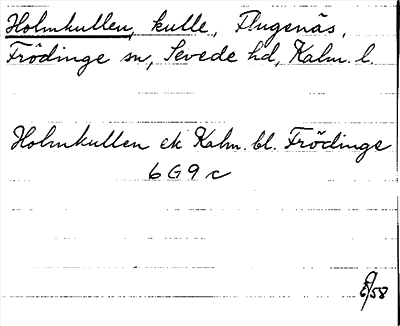 Holmkullen, kulle, Flugenäs,
Frödinge sn, Sevede hd, Kalm. l.
Holmkullen ek Kalm. bl. Frödinge
6 G 9 c
/58